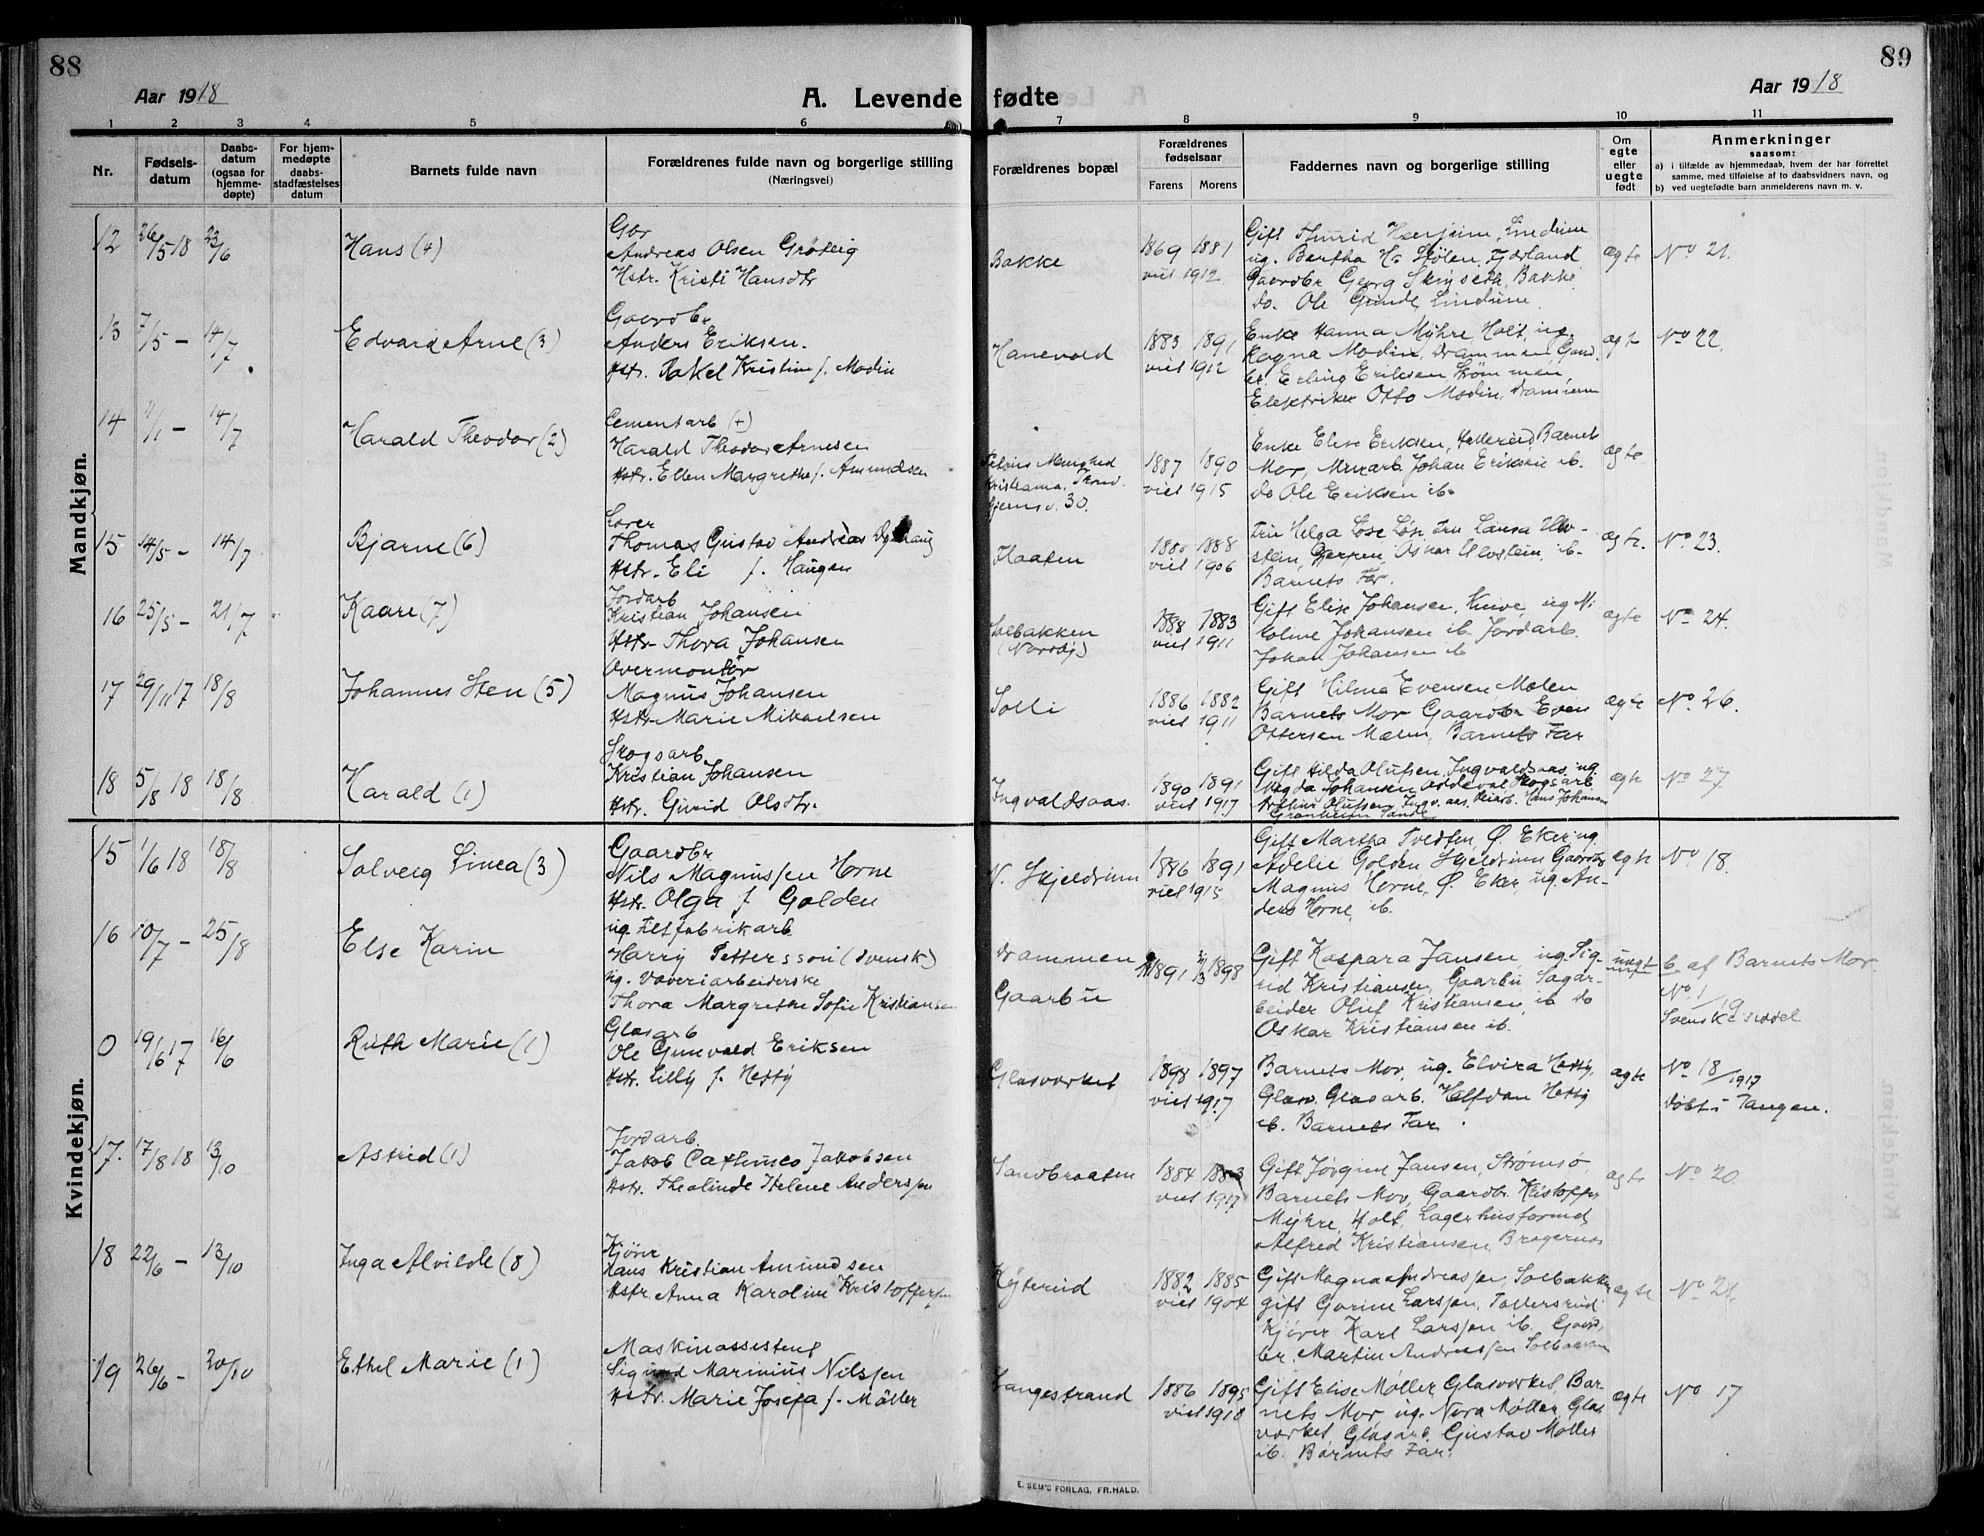 88
Aar 1918
A. Levende fødte
Aar 1918
89
1 2 3 4 5 6 7 8 9 10 11
Nr.
Fødsels-
datum
Daabs-
datum
(ogsaa for
hjemme-
døpte)
For hjem-
medøpte
daabs-
stadfæstelses
datum
Barnets fulde navn
Forældrenes fulde navn og borgerlige stilling
(Næringsvei)
Forældrenes bopæl
Forældrenes
fødselsaar
Farens Morens
Faddernes navn og borgerlige stilling
Om
egte
eller
uegte
født
Anmerkninger
saasom:
a) i tilfælde av hjemmedaab, hvem der har forrettet
samme, med tilføielse af to daabsvidners navn, og
b) ved uegtefødte barn anmelderens navn m. v.
Mandkjøn.
12 26/5 18 23/6 Hans (4)
Gbr
Andreas Olsen Grøtvig
Hstr. Kristi Hansdtr
Bakke
1869 1881
viet 1912
Gift Thurid Haerjeim, Lindum
ug. Bertha H. Stølen, Fjorland
Gaardbr Georg Skipseth, Bakke
do. Ole Gunde, Lindum
ægte No 21.
13 7/5 — 14/7 Edvard Arne (3)
Gaardbr
Anders Eriksen.
Hstr. Rakel Kristine f. Modin
Hanevold
1883 1891
viet 1912
Enke Hanna Myhre, Holt, ug.
Ragna Modin, Drammen, Gaard
br. Erling Eriksen Strømmen,
Elektriker Otto Modin, Drammen
ægte No 22.
14 1/1 — 14/7 Harald Theodor (2)
Cementarb (+)
Harald Theodor Arnesen
Hstr. Ellen Margrethe f. Amundsen
Petrus Menighed
Kristiania, Trond.
Gjems v. 30.
1887 1890
viet 1915
Enke Elise Eriksen, Hellerud Barnets
Mor, Murarb. Johan Eriksen ib.
do Ole Eriksen ib.
ægte
15 14/5 — 14/7 Bjarne (6)
Lærer
Thomas Gustav Andreas
Hstr. Eli f. Haugen
Haaten
1880 1888
viet 1906
Fru Helga Løse Løse, Fru Laura
stein, Gerpen, Oskar Ulvstein, ib.
Barnets Far.
ægte. No. 23.
16 25/5 — 21/7 Kaare (7)
Jordarb
Kristian Johansen
Hstr. Thora Johansen
Solbakken
1888 1883
viet 1911
Gift Elise Johansen, Knive, ug N.
Johansen ib. Jordarb.
Johan Johansen ib
ægte No 24.
17 29/11 17 18/8 Johannes Sten (5)
Overmontør
Magnus Johansen
Hstr. Marie Mikaelsen
Solli
1886 1882
viet 1911
Gift Hilma Evensen Mælen
Barnets Mor Gaardbr Even
Ottersen Mælen, Barnets Far
ægte No. 26.
18 5/8 18 18/8 Harald (1)
Skogsarb.
Kristian Johansen
Hstr. Gurid Olsdtr.
Ingvaldsaas.
1890 1891
viet 1917
Gift Hilda Olufsen, Ingvaldsaas ug
Magda Johansen Skogsarb.
Olufsen, Ingv. aas, Veiarb. Hans Johansen
ægte No 27.
Kvindekjøn.
15 1/6 18 18/8 Solveig Linea (3)
Gaardbr
Nils Magnussen Horne
Hstr. Olga f. Golden
N. Skjeldrum
1886 1891
viet 1915
Gift Martha Tvedten, Ø. Eker ug.
Adelie Golden Skjeldrum Gaardbr
Magnus Horne, Ø. Eker, ug. An-
ders Horne, ib.
ægte No 18.
16 10/7 — 25/8 Else Karin
ug. Filtfabrikarb.
Harry Pettersson (svensk)
ug. Væveriarbeiderske
Thora Margrethe Sofie Kristiansen
Drammen
Gaarbu
1891 1898
Gift Kaspara Jansen ug. Sig-
rid Kristiansen, Gaarbu Sagar-
beider Oluf Kristiansen, ib do
Oskar Kristiansen ib.
uegte b. af Barnets Mor.
No. 1/19
Svenskeseddel
0 19/6 17 16/6 Ruth Marie (1)
Glasarb
Ole Gunvald Eriksen
Hstr. Lilly f. Hetty
Glasværket
1898 1897
viet 1917
Barnets Mor, ug. Elvira Hetty,
Glasv. Glasarb. Halfdan Hetty
ib. Barnets Far.
ægte No 18/1917
døbt i Tangen.
17. 17/8 18 13/10 Astrid (1)
Jordarb.
Jakob Cathinco Jakobsen
Hstr. Theolinde Helene Anderssen
Sandbraaten
1884 1883
viet 1917
Gift Jørgine Jansen, Strømsø,
Barnets Mor, Gaardbr. Kristoffer
Myhre, Holt, Lagerhusformd
Alfred Kristiansen, Bragernæs
ægte No 20.
18 22/6 — 13/10 Inga Alvilde (8)
Kjører
Hans Kristian Amundsen
Hstr. Anna Karoline Kristoffersen
Kjøterud
1882 1885
viet 1904
Gift Magna Andreassen, Solbakken
gift Gorine Larssen, Tollersrud
Kjører Karl Larssen ib. Gaard-
br. Martin Andreassen Solbakken
ægte No 21.
19 26/6 — 20/10 Ethel Marie (1)
Maskinassistent
Sigurd Marinius Nilssen
Hstr. Marie Josefa f. Møller
Langestrand
1886 1895
viet 1918
Gift Elise Møller, Glasværket, Bar-
nets Mor, ug. Nora Møller, Glas
værket, Glasarb. Gustav Møller
ib. Barnets Far.
ægte No 17
E. SEM'S FORLAG, FR.HALD.